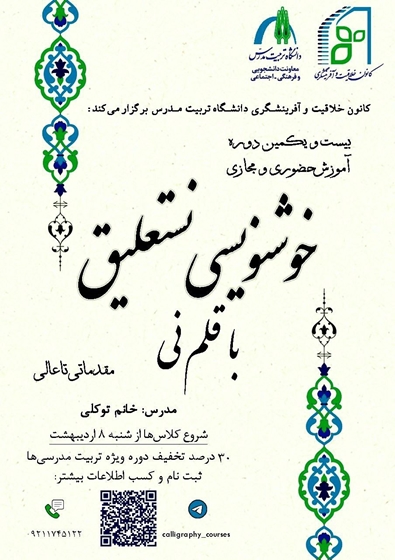 دانشگاه تربیت مدرس
معاونت دانشجویی
و فرهنگی - اجتماعی
کانون خلاقیت و آفرینشگری
کانون خلاقیت و آفرینشگری دانشگاه تربیت مدرس برگزار می‌کند:
بیست و یکمین دوره
آموزش حضوری و مجازی
خوشنویسی نستعلیق
با قلم نی
مقدماتی تا عالی
مدرس: خانم توکلی
شروع کلاس‌ها از شنبه ۸ اردیبهشت
۳۰ درصد تخفیف دوره ویژه تربیت مدرسی‌ها
ثبت نام و کسب اطلاعات بیشتر:
۰۹۲۱۱۷۴۵۱۲۲
calligraphy_courses